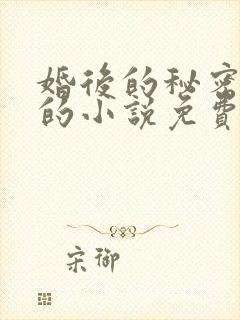 婚後的秘密
的小說免費
宋御